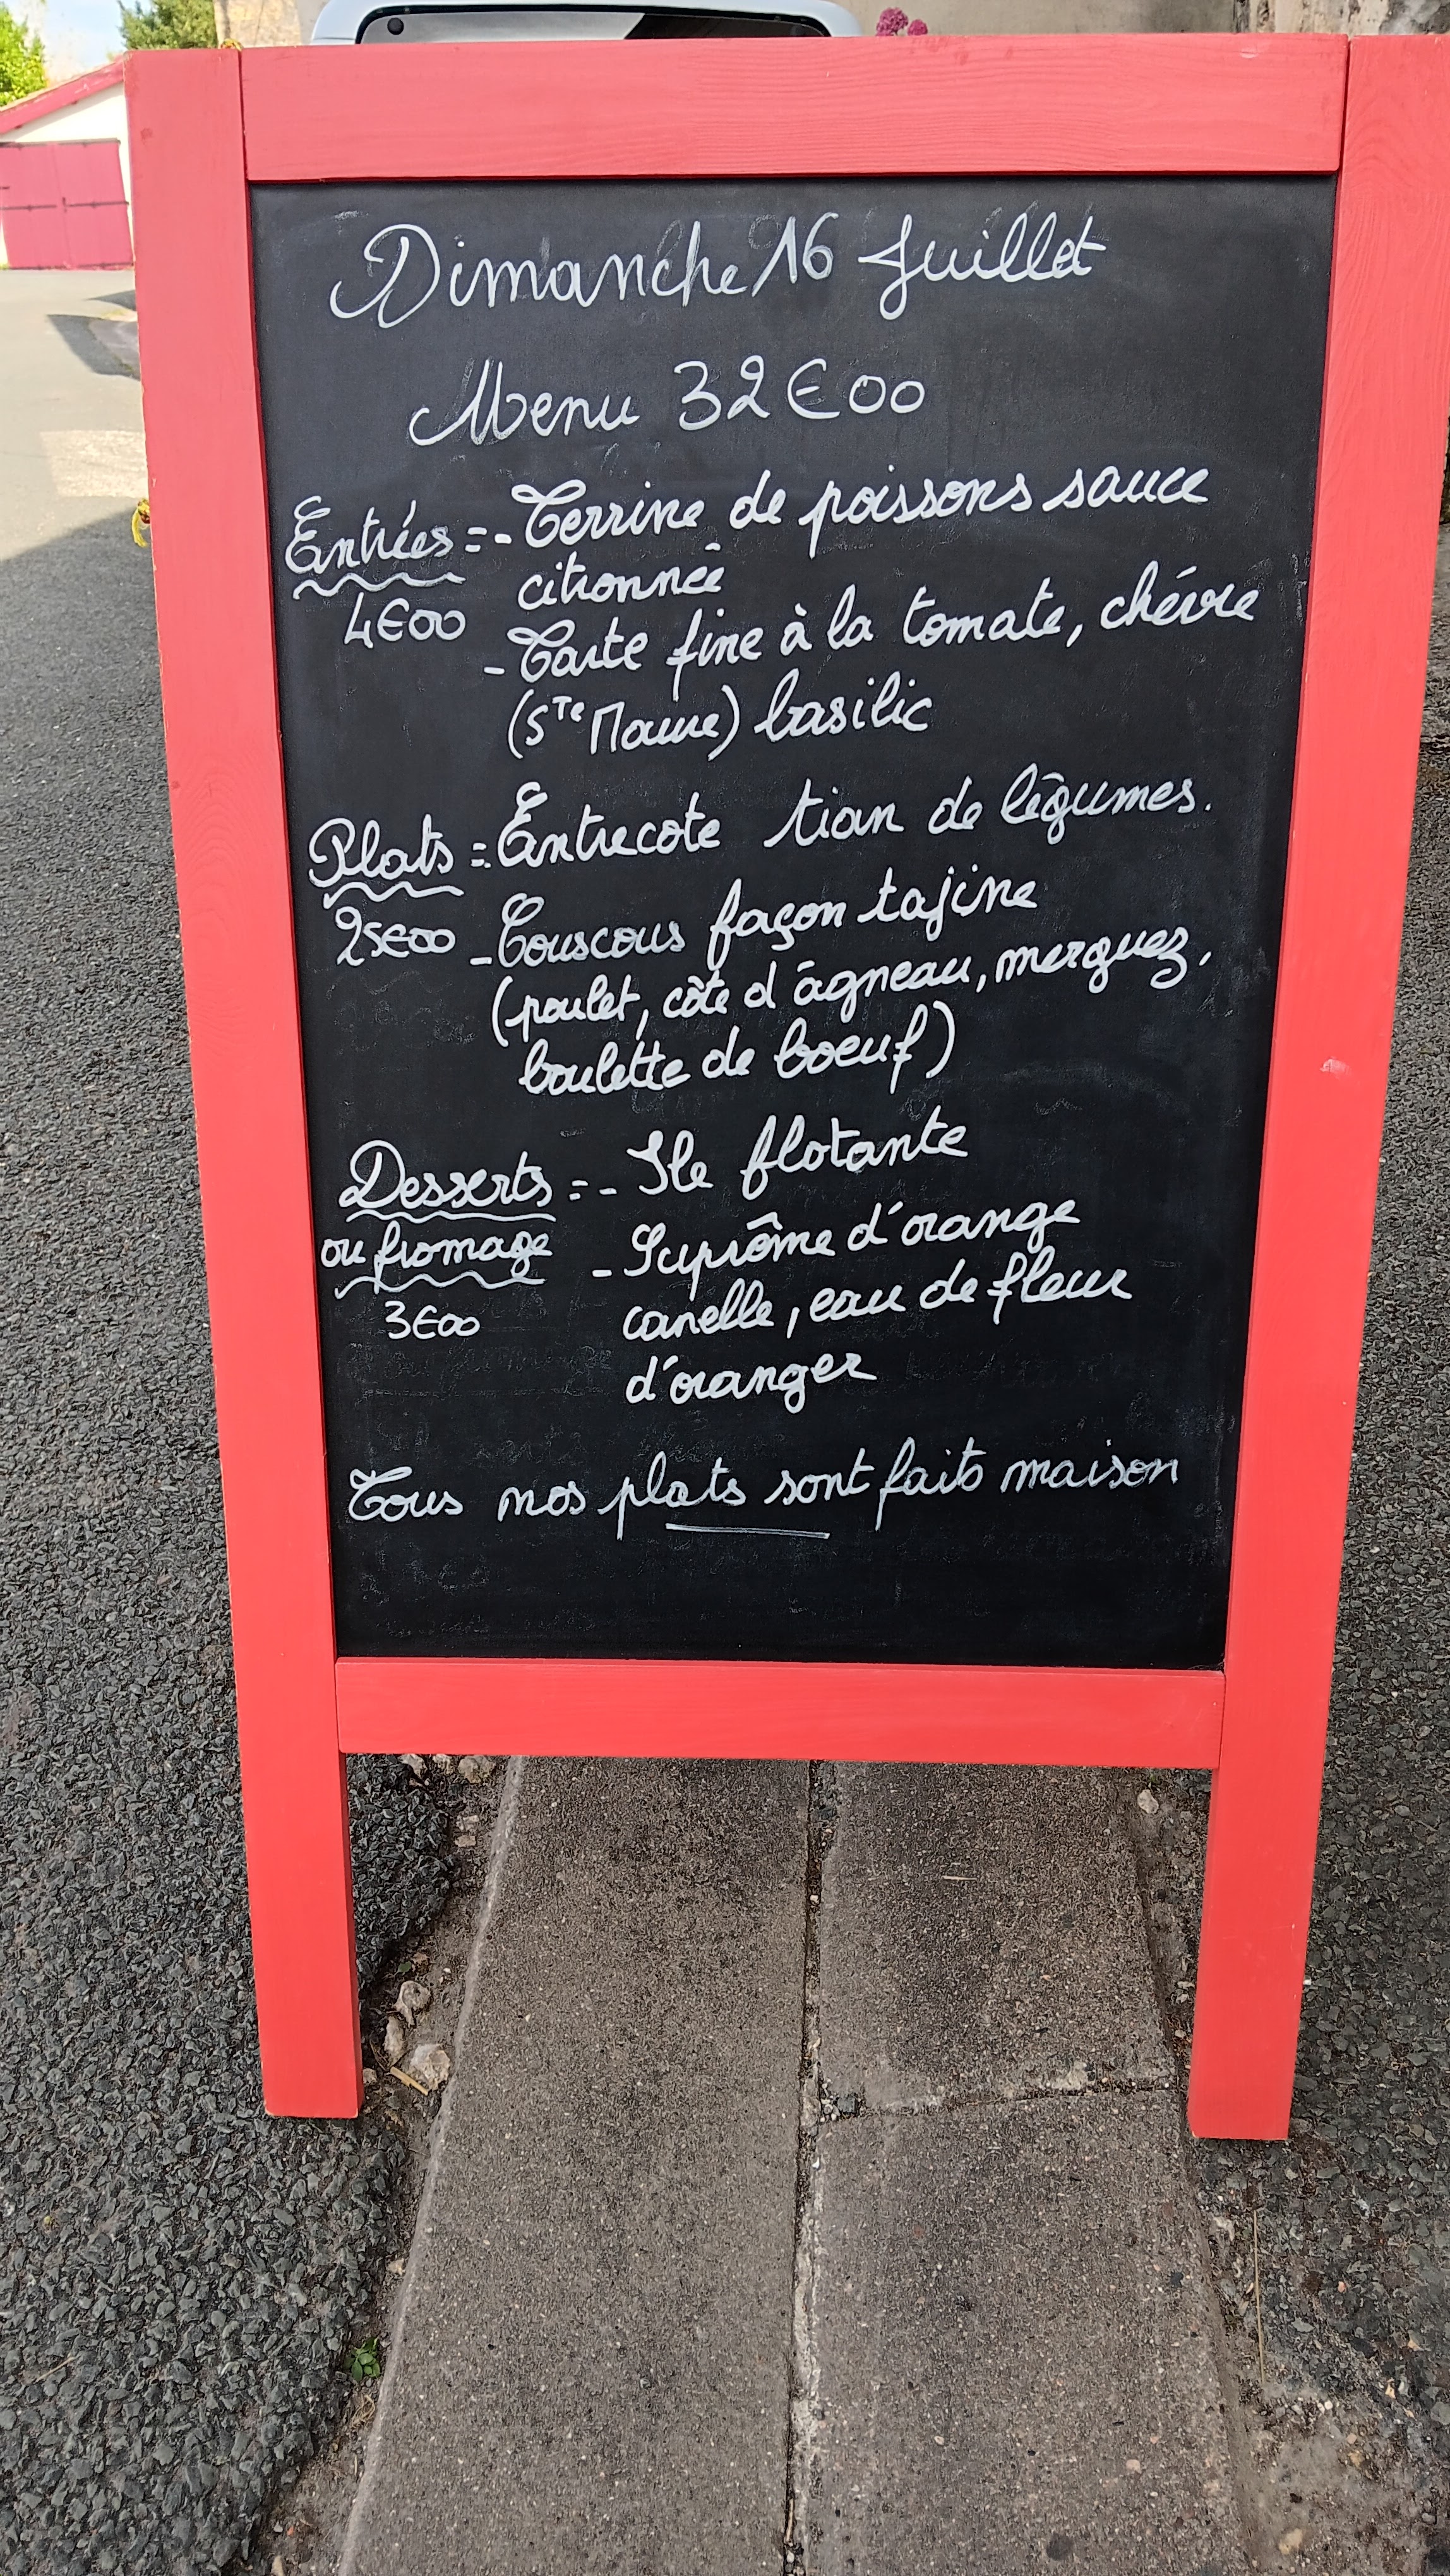 Dimanche 16 Juillet
Menu 32€00
Entrées = - Terrine de poissons sauce
citronnée
4€00
- Tarte fine à la tomate, chévre
(Ste Maure) basilic
Plats = - Entrecote tian de légumes.
25€00 - Couscous façon tajine
(poulet, côte d'agneau, merguez,
boulette de boeuf)
Desserts = - Ile flotante
ou fromage
- Suprôme d'orange
3€00
canelle, eau de fleur
d'oranger
Tous nos plats sont faits maison